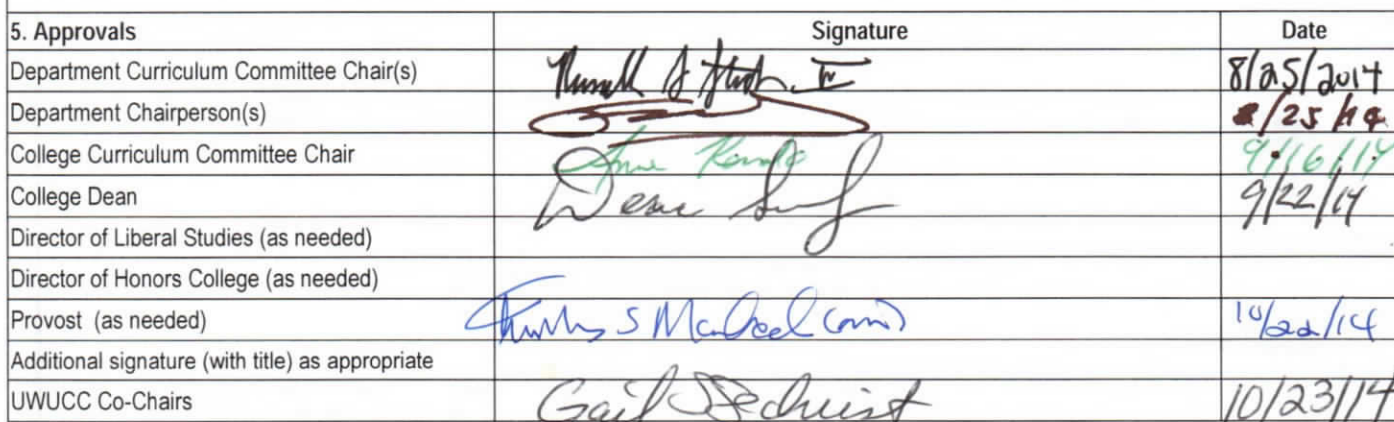 5. Approvals Signature Date
Department Curriculum Committee Chair(s) 8/25/2014
Department Chairperson(s) 8/25/14
College Curriculum Committee Chair Anne 9/16/14
College Dean Dean 9/22/14
Director of Liberal Studies (as needed)
Director of Honors College (as needed)
Provost (as needed) S 10/22/14
Additional signature (with title) as appropriate
UWUCC Co-Chairs Gail Sechrist 10/23/14